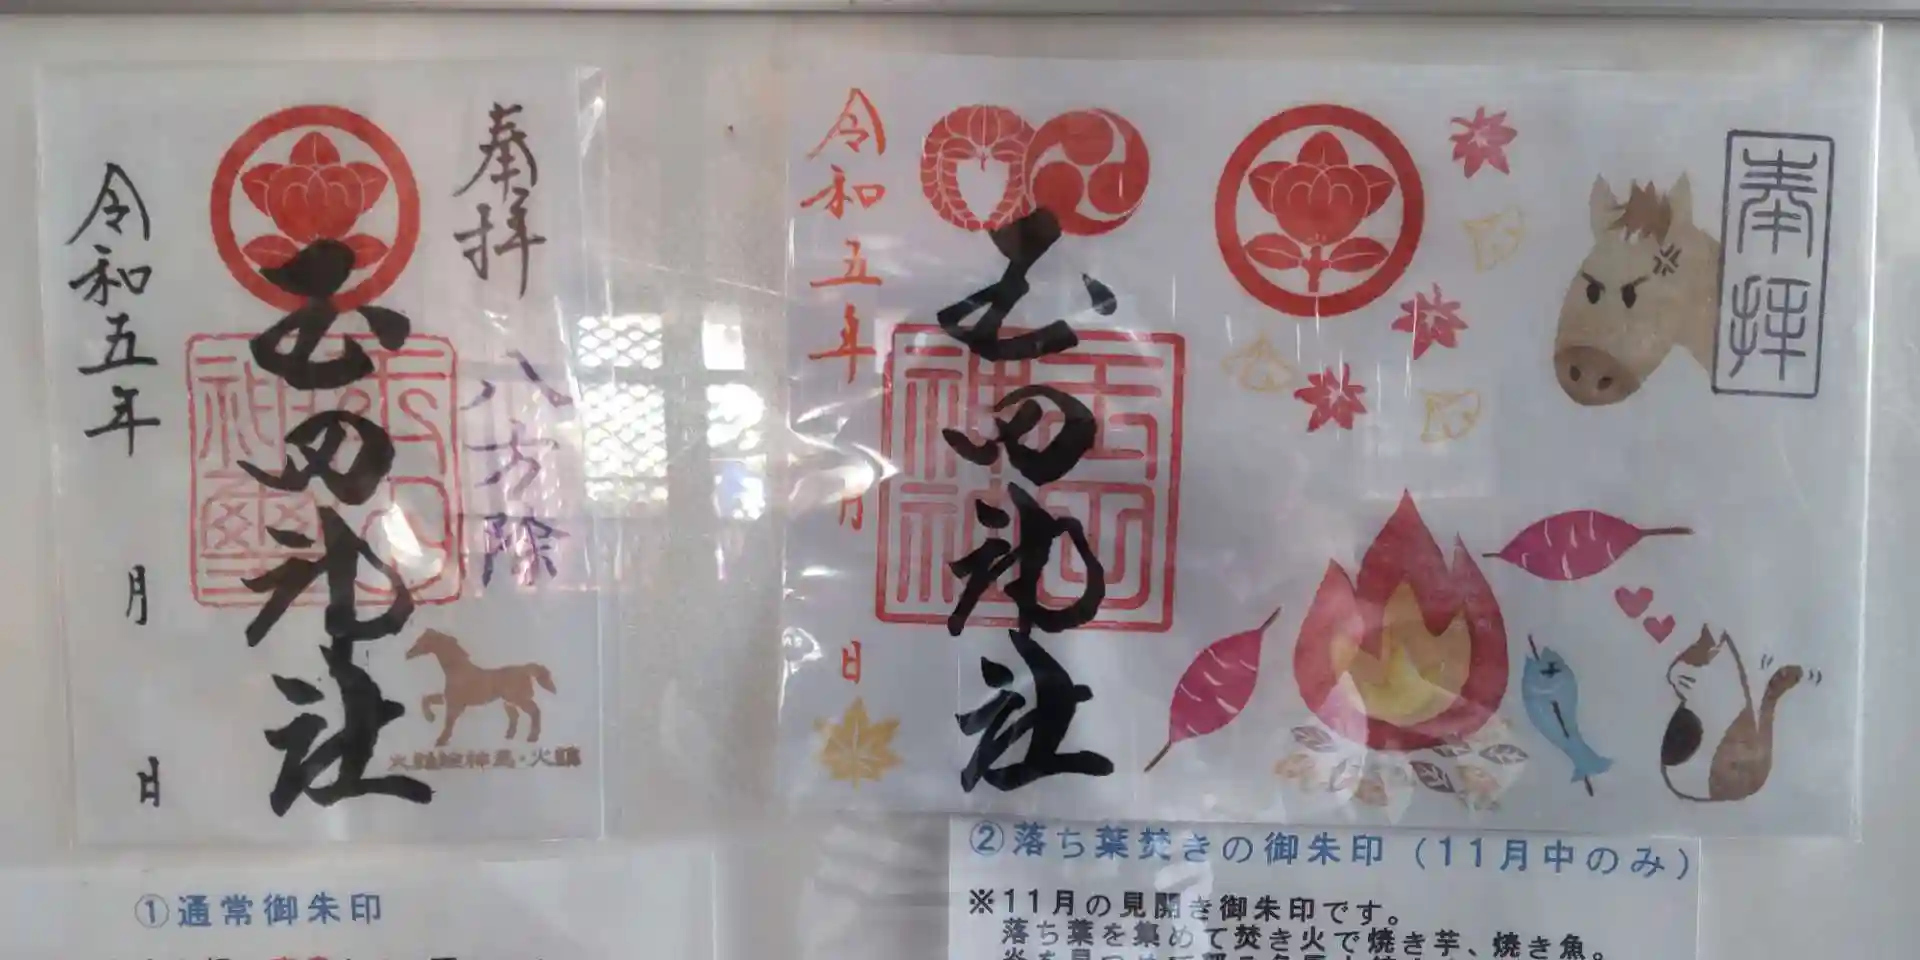 奉拝
八方除
玉田神社
令和五年
月
日
①通常御朱印
奉拝
玉田神社
令和五年
月
日
②落ち葉焚きの御朱印（11月中のみ）
※11月の見開き御朱印です。
落ち葉を集めて焚き火で焼き芋、焼き魚。